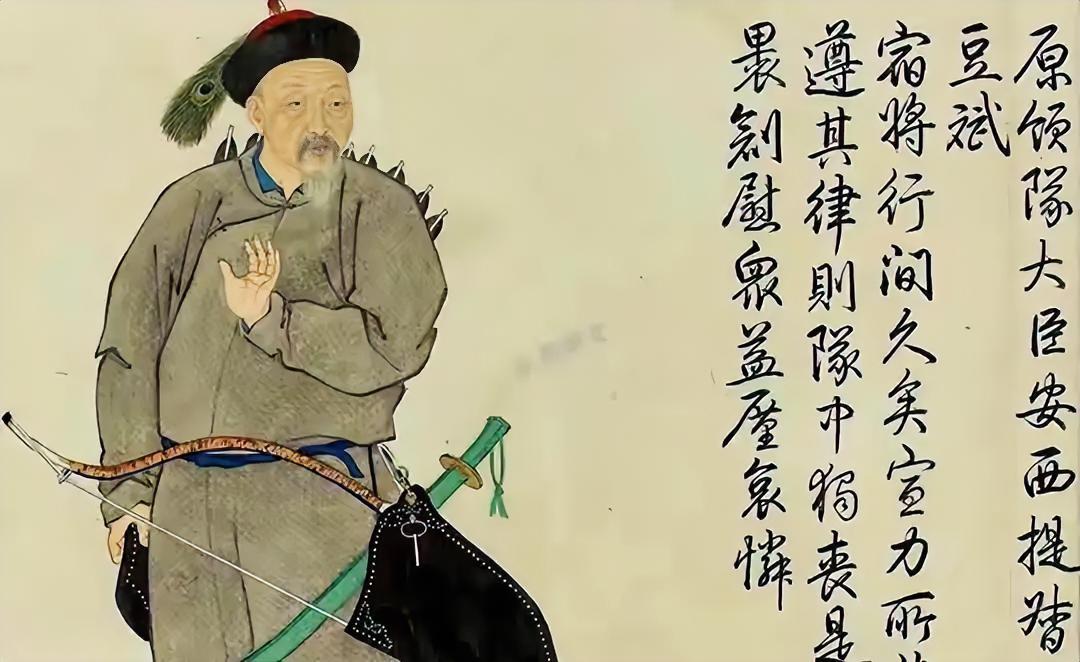 原領隊大臣安西提督
豆斌
宿將行間久矣宣力所
遵其律則隊中獨喪是
裹創慰眾益廑哀憐